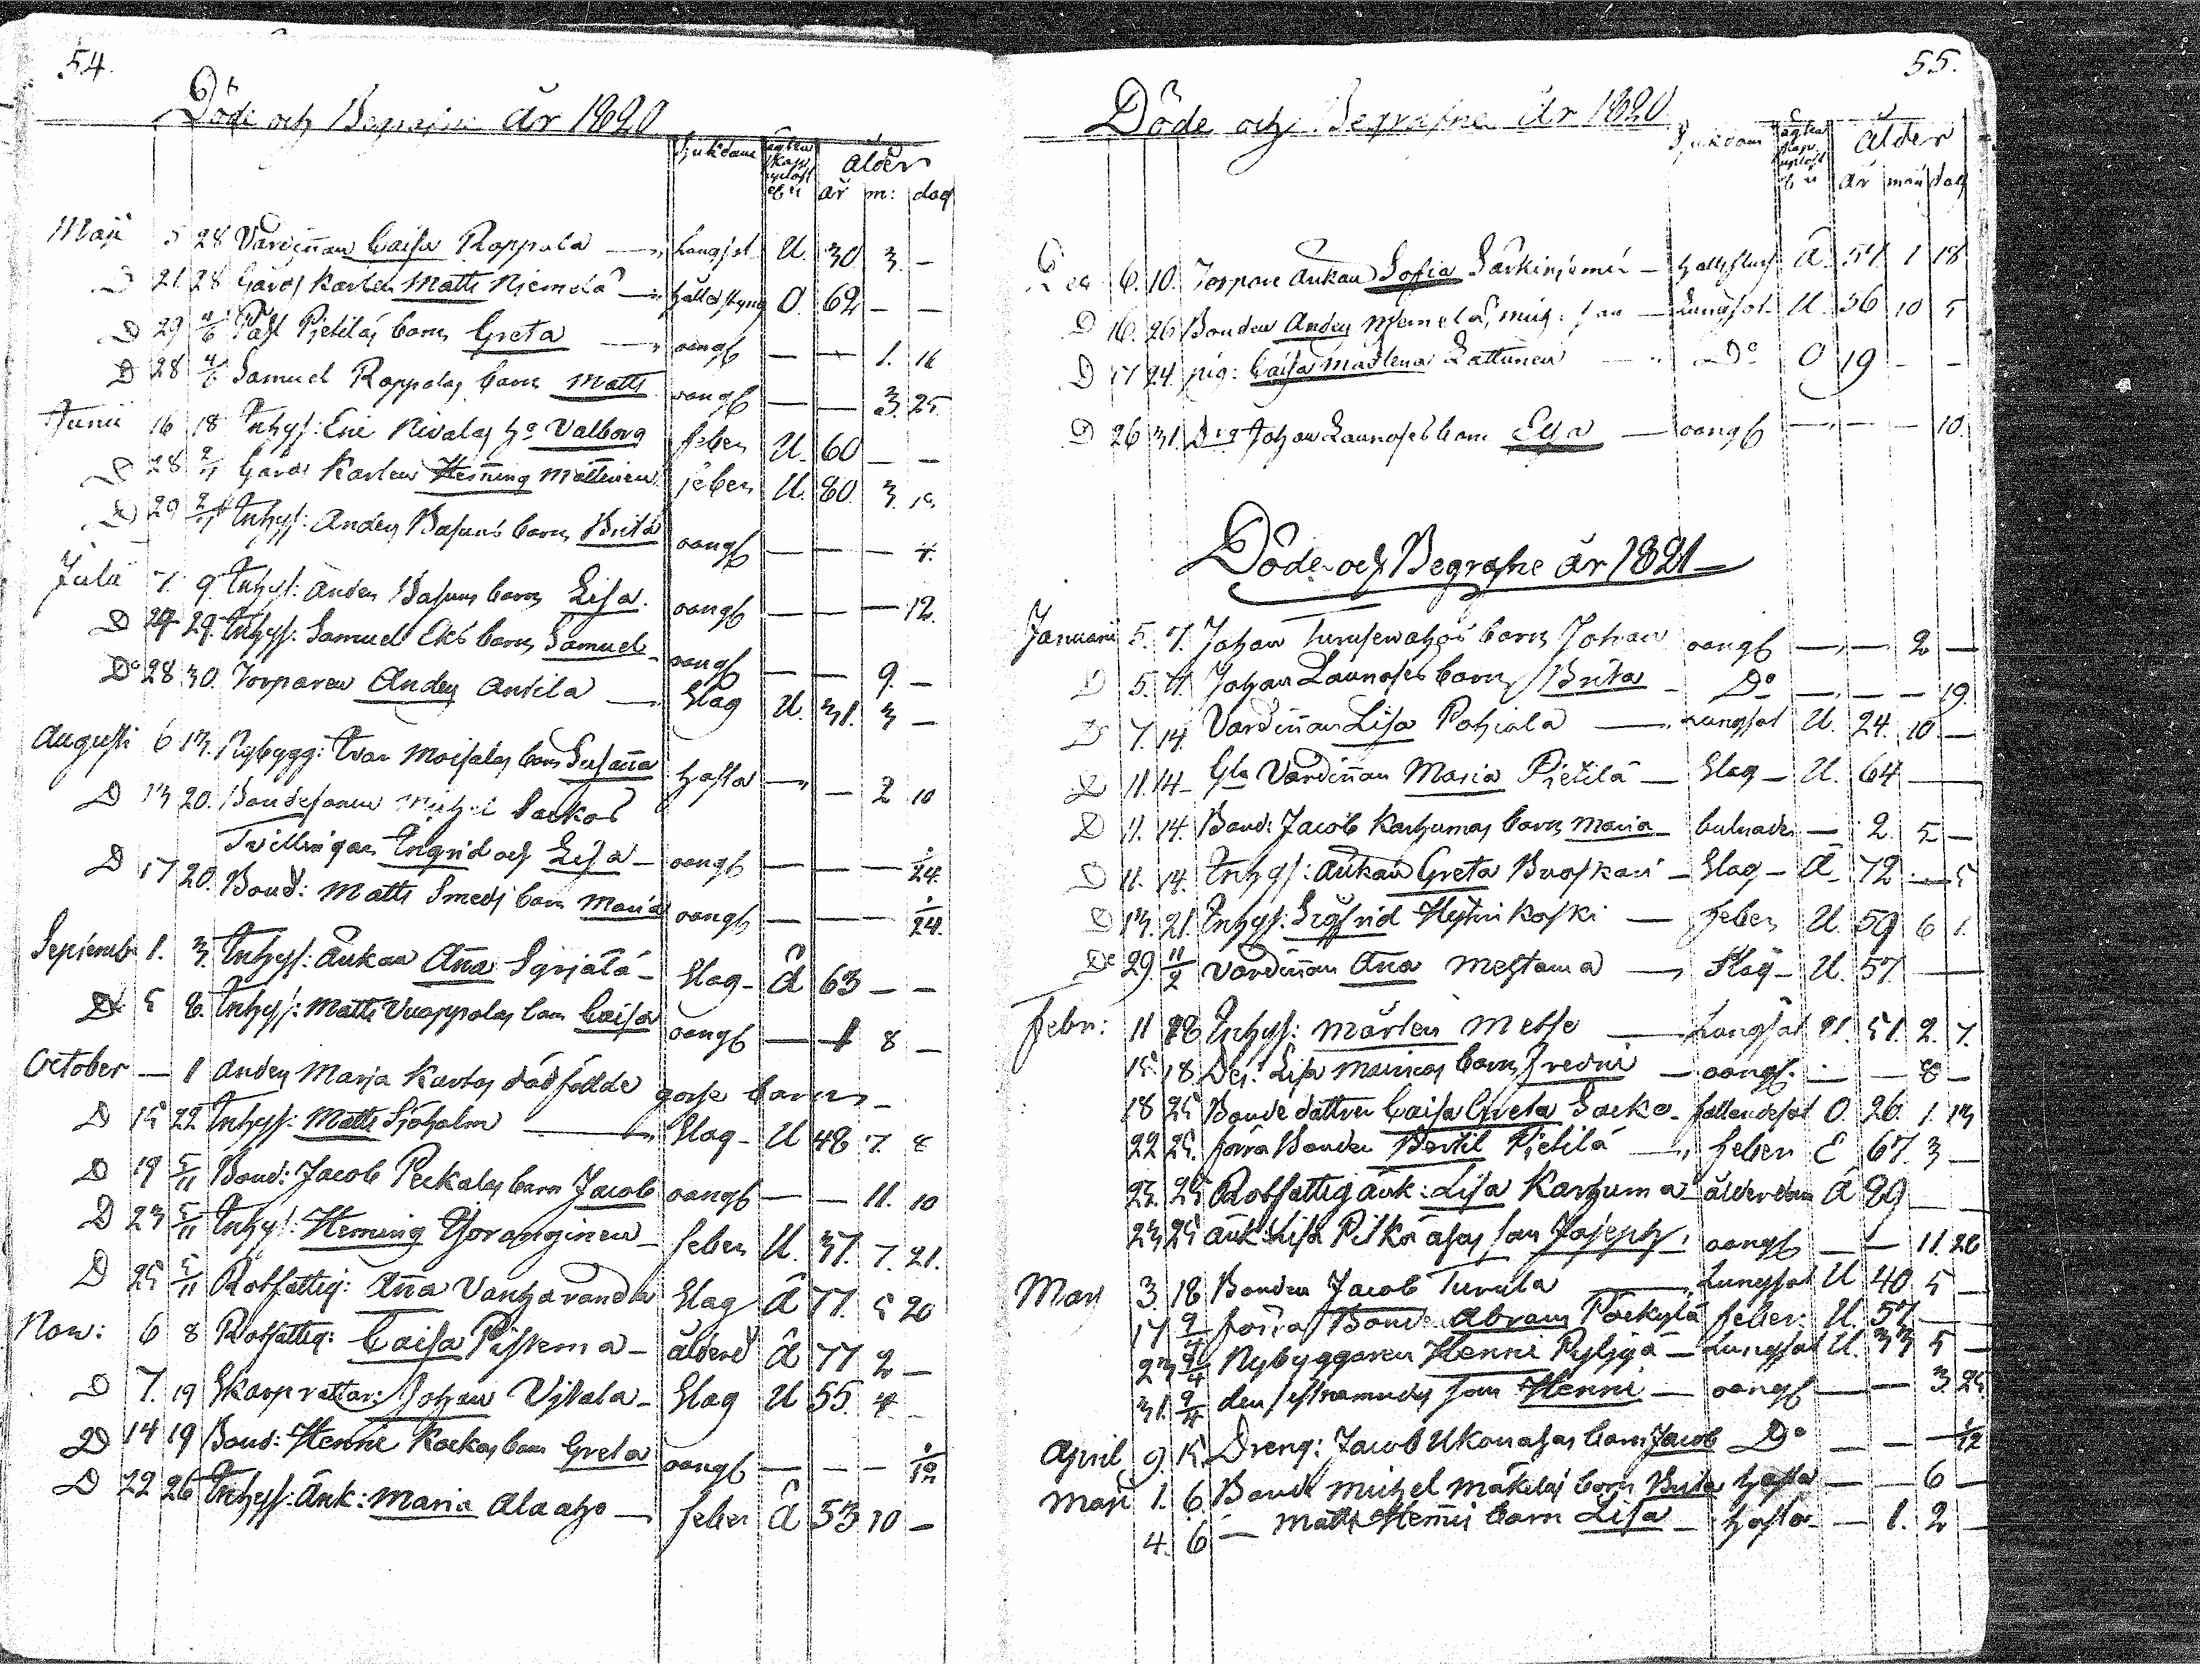 54.
Döde och Begrafne År 1820
Sjukdom ägtenskap uplöst af ålder
år m: dag
Maji 5 28 Värdinnan Caisa Roppola — Lungsot U. 30 3. —
D 21 28 Gårds Karlen Matts Niemelä — hålls styng O. 62 — —
D 29 4/6 Past Pietiläs barn Greta — oangf — — 1. 16
D 28 4/6 Samuel Roppolas barn Matts oangf — — 3. 25.
Junii 16 18 Inhys: Eric Nivalas ho Valborg feber U. 60 — —
D 28 2/7 Gårds Karlen Henning Mattinen feber U. 80. 3.
D 29 2/7 Inhys: Anders Basuns barn Brita oangf — — — 4.
Julii 7. 9. Inhys: Anders Basuns barn Lisa. oangf — — — 12.
D 27 29. Inhys: Samuel Eks barn Samuel oangf — — 9. —
Do 28 30. Torparen Anders Antila — Slag U. 31. 3 —
Augusti 6 13. Nybygg: Ivar Moisalas barn Susanna hosta — — 2 10
D 13 20. Bondesonen Michel Sackos
Tvillingar Ingrid och Lisa — oangf — — — 1/24.
D 17 20. Bond: Matts Smeds barn Maria oangf — — — 1/24.
Septemb: 1. 3. Inhys: Änkan Anna Syrjälä — Slag — Ä 63 — —
D 5 8. Inhys: Matts Vuoppolas barn Caisa oangf — 1 8 —
October — 1 Anders Marja Karhus död födde gosse barn —
D 15 22 Inhys: Matts Sjöholm — Slag — U 48 7. 8
D 19 5/11 Bond: Jacob Peckalas barn Jacob oangf — — 11. 10
D 23 5/11 Inhys: Henning Gjoranginen — feber U. 37. 7. 21.
D 25 5/11 Rotfattig: Anna Vanhavanda Slag Ä 77. 5 20
Nov: 6 8 Rotfattig: Caisa Pistema — ålderd Ä 77 2 —
D 7. 19 Skarprättar: Johan Vjtala — Slag U 55. 4
D 14 19 Bond: Henric Kackos barn Greta oangf — — — 1/12
D 22 26 Inhys: Änk: Maria Alaaho — feber Ä 53 10 —
55.
Döde och Begrafne År 1820
Sjukdom ägtenskap uplöst af ålder
år mån dag
Dec 6. 10. Torpare Änkan Sofia Särkiniemi — Ä 54 1 18
D 16. 26 Bonden Anders Niemelä, — Lungsot U. 56 10 5
D 17 24. pig: Caisa Madlena Lattunen — Do O 19 — —
D 26 31. Drg Johan Launoses barn Eva — oangf — — — 10.
Döde och Begrafne år 1821
Januarii 5. 7. Johan Turusenahos barn Johan oangf — — 2 —
D 5. 14 Johan Launoses barn Brita — Do — — — 19.
D 7. 14. Värdinnan Lisa Pohiola — Lungsot U. 24. 10 —
D 11. 14. Gla Värdinnan Maria Pietilä — Slag — U. 64 —
D 11. 14. Bond: Jacob Karhumas barn Maria — bulnader — 2. 5 —
D 11. 14. Inhys: Änkan Greta Buoskari — Slag — Ä 72 — 5
D 13. 21. Inhys: Sigfrid Hyhnikoski — feber U. 59 6 1.
Do 29. 11/2 Värdinnan Anna Meltama — Slag — U. 57. —
Febr: 11 18 Inhys: Mårten Metse — Lungsot U. 51. 2. 7.
15 18 Dej: Lisa Mainios barn Fredric — oangf. — — 8 —
18 25 Bonde dottren Caisa Greta Sacko — fallandesot O. 26. 1. 13
22 25. förra Bonden Bertil Pietilä — feber E 67. 3 —
23. 25 Rotfattig änk: Lisa Karhuma ålderdom Ä 89 —
23 25 Änk: Lisa Pitkänahos son Joseph. oangf — — 11. 26
Mars 3. 18 Bonden Jacob Turula — Lungsot U 40. 5 —
17 9/4 förra Bonden Abram Päckylä feber. U. 57. —
23 9/4 Nybyggaren Henric Pyljyä — Lungsot U. 33 5 —
31. 9/4 den sistnämndes son Henric — oangf — — 3. 25
April 9. 15. Dreng: Jacob Ukonahos barn Jacob Do — — — 1/12
Maji 1. 6. Bond: Michel Mäkeläs barn Brita hosta — — 6 —
4. 6 — Matts Hennis barn Lisa — hosta — 1. 2 —